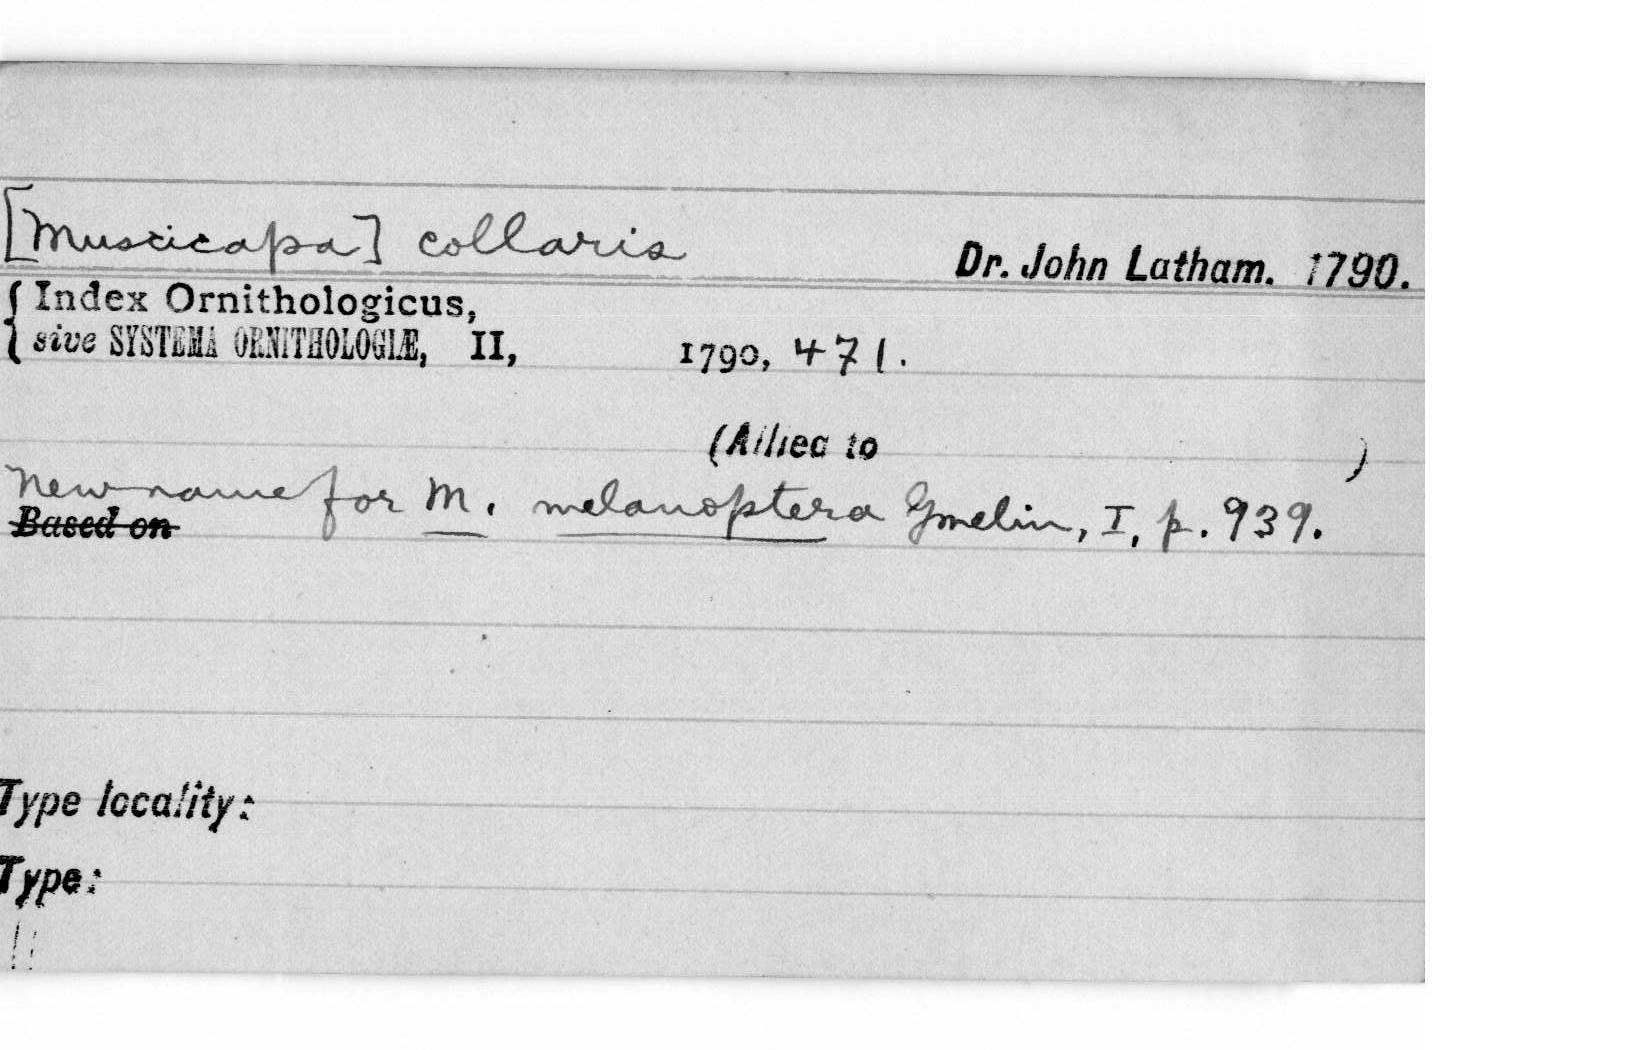 [Muscicapa] collaris Dr. John Latham. 1790.
Index Ornithologicus,
sive SYSTEMA ORNITHOLOGIÆ, II, 1790, 471.
(Allied to )
New name for M. melanoptera Gmelin, I, p. 939.
Based on
Type locality:
Type: